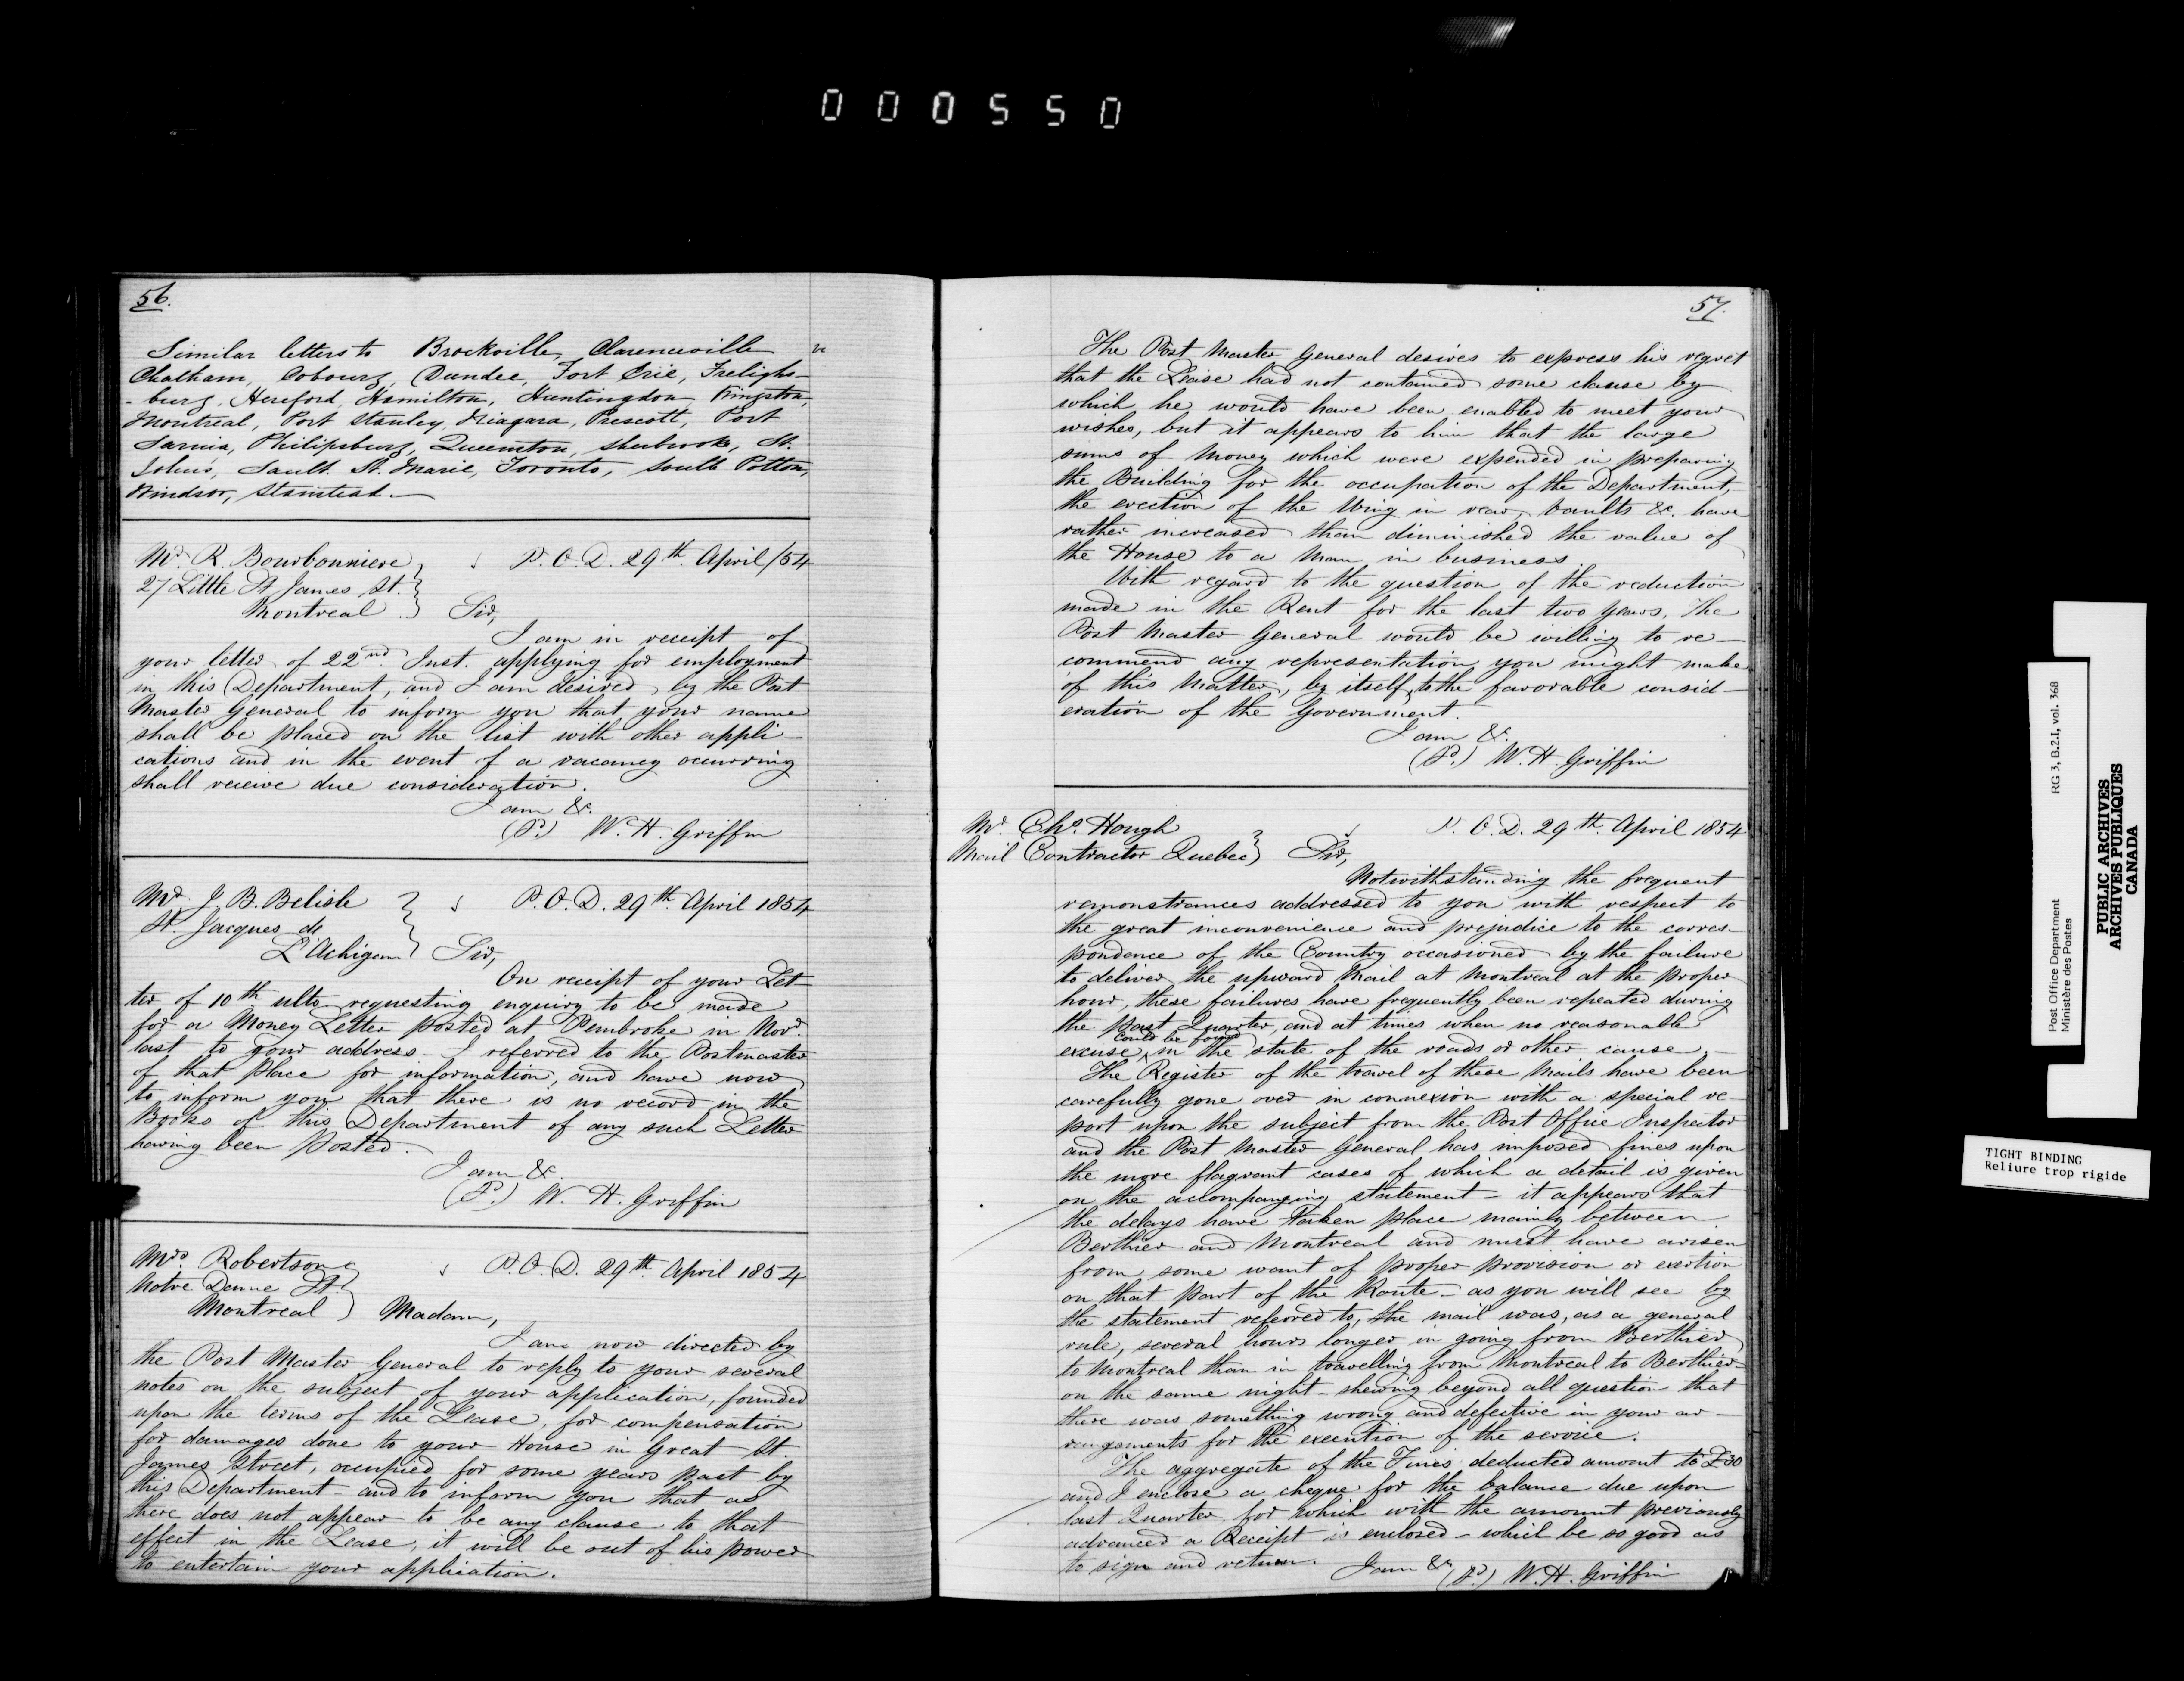 000550
56.
Similar letters to Brockville, Clarenceville
Chatham, Cobourg, Dundee, Fort Erie, Frelighs-
-burg, Hereford, Hamilton, Huntingdon, Kingston,
Montreal, Port Stanley, Niagara, Prescott, Port
Sarnia, Philipsburg, Queenston, Sherbrooke, St.
Johns, Sault St. Marie, Toronto, South Potton,
Windsor, Stanstead.
Mr. R. Bourbonniere
27 Little St James St.
Montreal
P. O. D. 29th April/54
Sir,
I am in receipt of
your letter of 22nd Inst. applying for employment
in this Department, and I am desired by the Post
Master General to inform you that your name
shall be placed on the list with other appli-
cations and in the event of a vacancy occurring
shall receive due consideration.
I am &c.
W. H. Griffin
Mr. J. B. Belisle
St. Jacques de
L'Achigan
P. O. D. 29th April 1854
Sir,
On receipt of your Let-
ter of 10th ulto requesting enquiry to be made
for a Money Letter posted at Pembroke in Novr.
last to your address. I referred to the Postmaster
of that Place for information, and have now
to inform you that there is no record in the
Books of this Department of any such Letter
having been Posted.
I am &c.
W. H. Griffin
Mrs. Robertson
Notre Dame St
Montreal
P. O. D. 29th April 1854
Madam,
I am now directed by
the Post Master General to reply to your several
notes on the subject of your application, founded
upon the terms of the Lease, for compensation
for damages done to your House in Great St.
James Street, occupied for some years past by
this Department - and to inform you that as
there does not appear to be any clause to that
effect in the Lease, it will be out of his power
to entertain your application.
57.
The Post Master General desires to express his regret
that the Lease had not contained some clause by
which he would have been enabled to meet your
wishes, but it appears to him that the large
sums of Money which were expended in preparing
the Building for the occupation of the Department,
the erection of the Wing in rear, Vaults &c. have
rather increased than diminished the value of
the House to a Man in business.
With regard to the question of the reduction
made in the Rent for the last two years, the
Post Master General would be willing to re-
commend any representation you might make
of this Matter, by itself, to the favorable consid-
eration of the Government.
I am &c.
W. H. Griffin
Mr. Chs. Hough
Mail Contractor Quebec
P. O. D. 29th April 1854
Sir,
Notwithstanding the frequent
remonstrances addressed to you with respect to
the great inconvenience and prejudice to the corres-
pondence of the Country occasioned by the failure
to deliver the upward Mail at Montreal at the proper
hour, these failures have frequently been repeated during
the past Quarter, and at times when no reasonable
could be found
excuse in the state of the roads or other cause -
The Register of the travel of these Mails have been
carefully gone over in connexion with a special re-
port upon the subject from the Post Office Inspector
and the Post Master General has imposed fines upon
the more flagrant cases of which a detail is given
on the accompanying statement - it appears that
the delays have taken place mainly between
Berthier and Montreal and must have arisen
from some want of proper provision or exertion
on that part of the Route - as you will see by
the statement referred to, the mail was, as a general
rule, several hours longer in going from Berthier
to Montreal than in travelling from Montreal to Berthier
on the same night - shewing beyond all question that
there was something wrong and defective in your ar-
rangements for the execution of the service.
The aggregate of the Fines deducted amount to £30
and I enclose a cheque for the balance due upon
last Quarter, for which with the amount previously
advanced a Receipt is enclosed - which be so good as
to sign and return. I am &c W. H. Griffin
Post Office Department RG 3, B.2.I, vol. 368
Ministère des Postes
PUBLIC ARCHIVES
ARCHIVES PUBLIQUES
CANADA
TIGHT BINDING
Reliure trop rigide